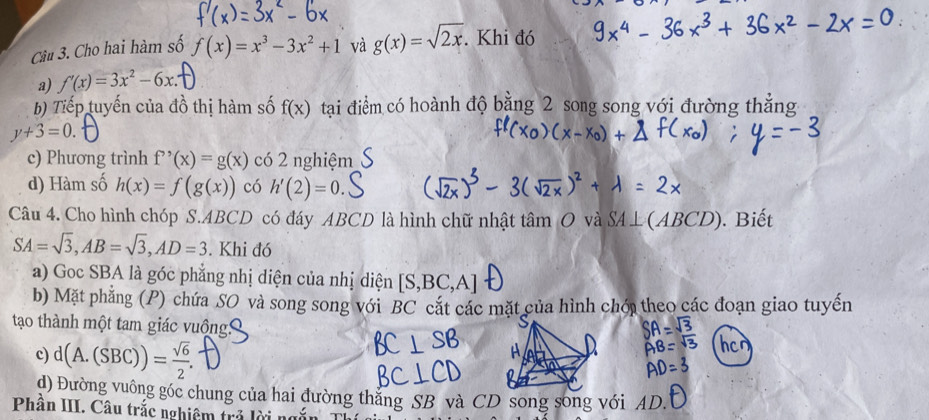 f'(x)=3x² - 6x
9x⁴ - 36x³ + 36x² - 2x = 0.
Câu 3. Cho hai hàm số f(x) = x³ − 3x² + 1 và g(x) = √(2x). Khi đó
a) f'(x) = 3x² − 6x. Đ
b) Tiếp tuyến của đồ thị hàm số f(x) tại điểm có hoành độ bằng 2 song song với đường thẳng
y + 3 = 0. Đ
f'(x₀)(x-x₀) + f(x₀) ; y = -3
c) Phương trình f''(x) = g(x) có 2 nghiệm S
d) Hàm số h(x) = f(g(x)) có h'(2) = 0. S
(√2x)³ - 3(√2x)² + 1 = 2x
Câu 4. Cho hình chóp S.ABCD có đáy ABCD là hình chữ nhật tâm O và SA ⊥ (ABCD). Biết
SA = √3, AB = √3, AD = 3. Khi đó
a) Goc SBA là góc phẳng nhị diện của nhị diện [S,BC,A] Đ
b) Mặt phẳng (P) chứa SO và song song với BC cắt các mặt của hình chóp theo các đoạn giao tuyến
tạo thành một tam giác vuông. S
BC ⊥ SB
BC ⊥ CD
S
H
D
B
C
SA = √3
AB = √3
AD = 3
hcn
c) d(A.(SBC)) = √6/2. Đ
d) Đường vuông góc chung của hai đường thẳng SB và CD song song với AD. Đ
Phần III. Câu trắc nghiệm trả lời ngắn